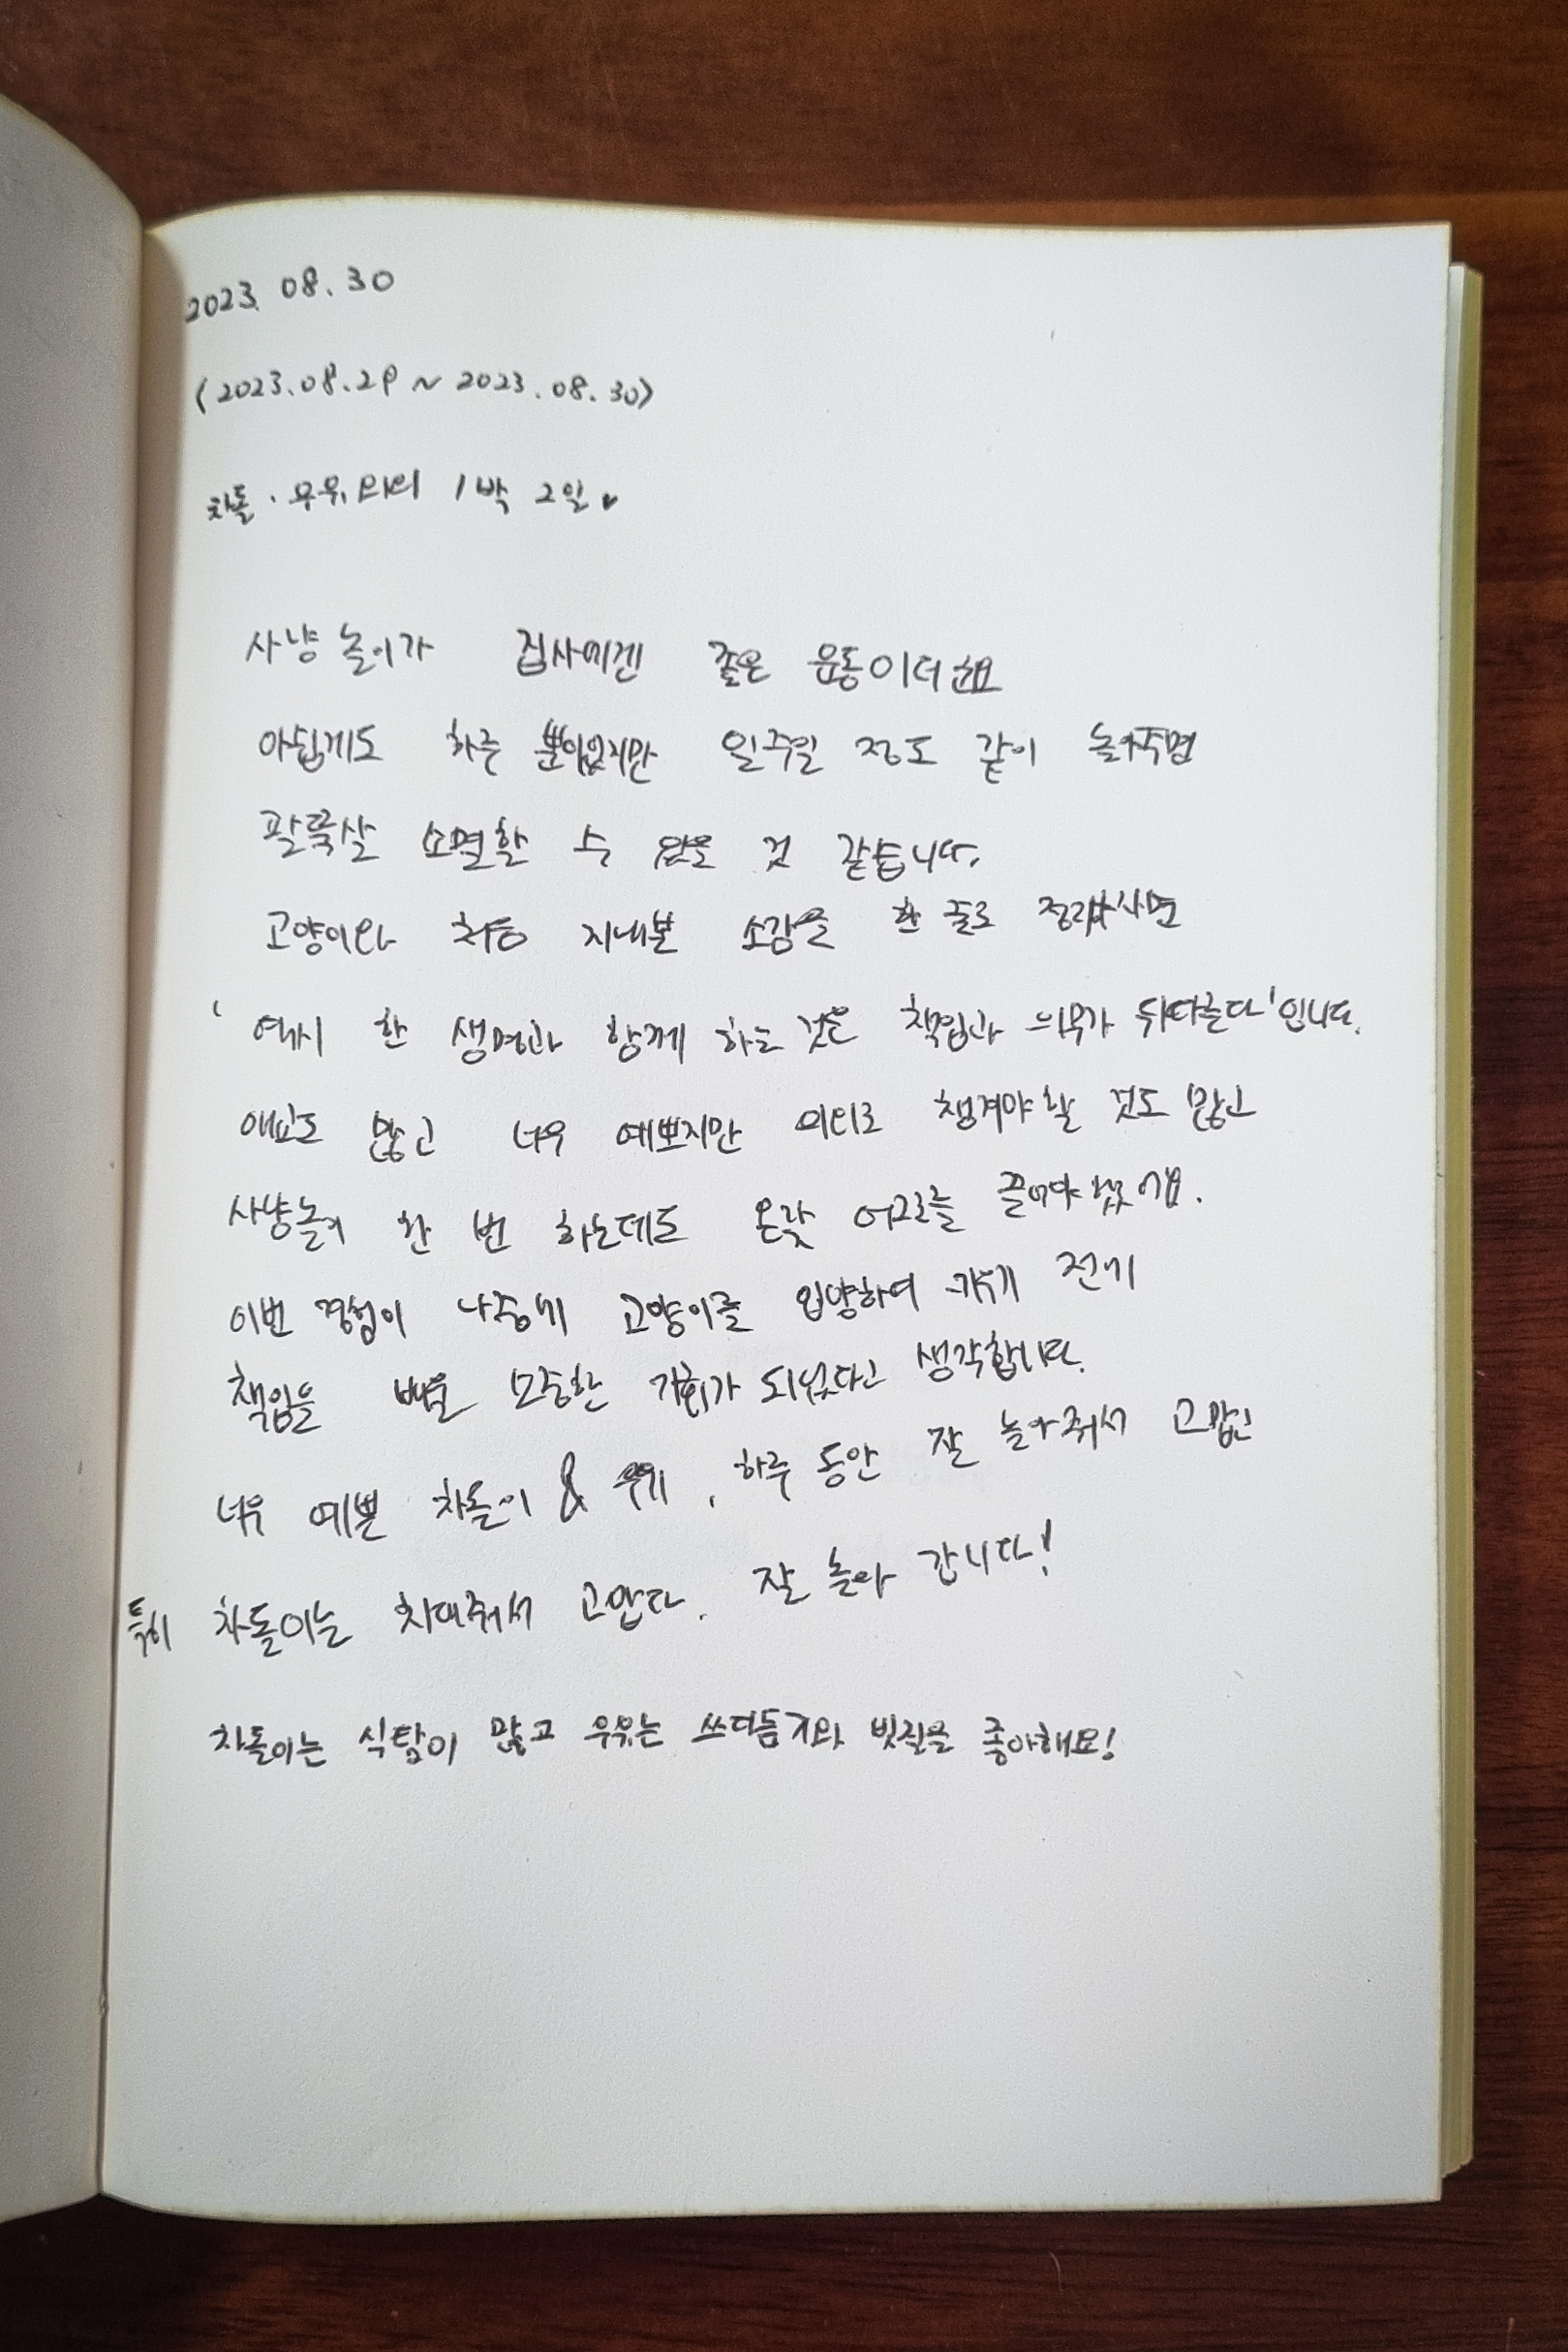 2023. 08. 30
(2023.08.29 ~ 2023.08.30)
차돌·우유와의 1박 2일♥
사냥놀이가 집사에겐 좋은 운동이더군요
아쉽게도 하루 뿐이었지만 일주일 정도 같이 놀아주면
팔뚝살 소멸할 수 있을 것 같습니다.
고양이와 처음 지내본 소감을 한 줄로 정리하자면
'역시 한 생명과 함께 하는 것은 책임과 의무가 뒤따른다'입니다.
애교도 많고 너무 예쁘지만 의외로 챙겨야할 것도 많고
사냥놀이 한 번 하는데도 온갖 어그로를 끌어야했어요.
이번 경험이 나중에 고양이를 입양하여 키우기 전에
책임을 배울 소중한 기회가 되었다고 생각합니다.
너무 예쁜 차돌이 & 우유, 하루 동안 잘 놀아줘서 고맙고
특히 차돌이는 참아줘서 고맙다. 잘 놀다 갑니다!
차돌이는 식탐이 많고 우유는 쓰다듬기와 빗질을 좋아해요!